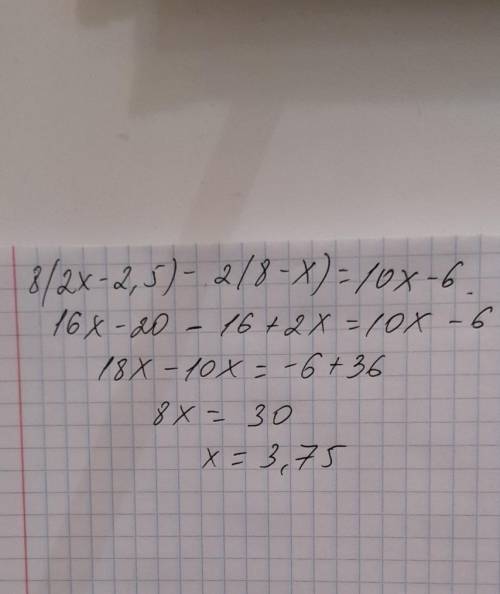 8(2x-2,5)- 2(8-x)=10x-6.
16x-20 - 16+2x=10x - 6
18x-10x = -6+36
8x = 30
x = 3,75